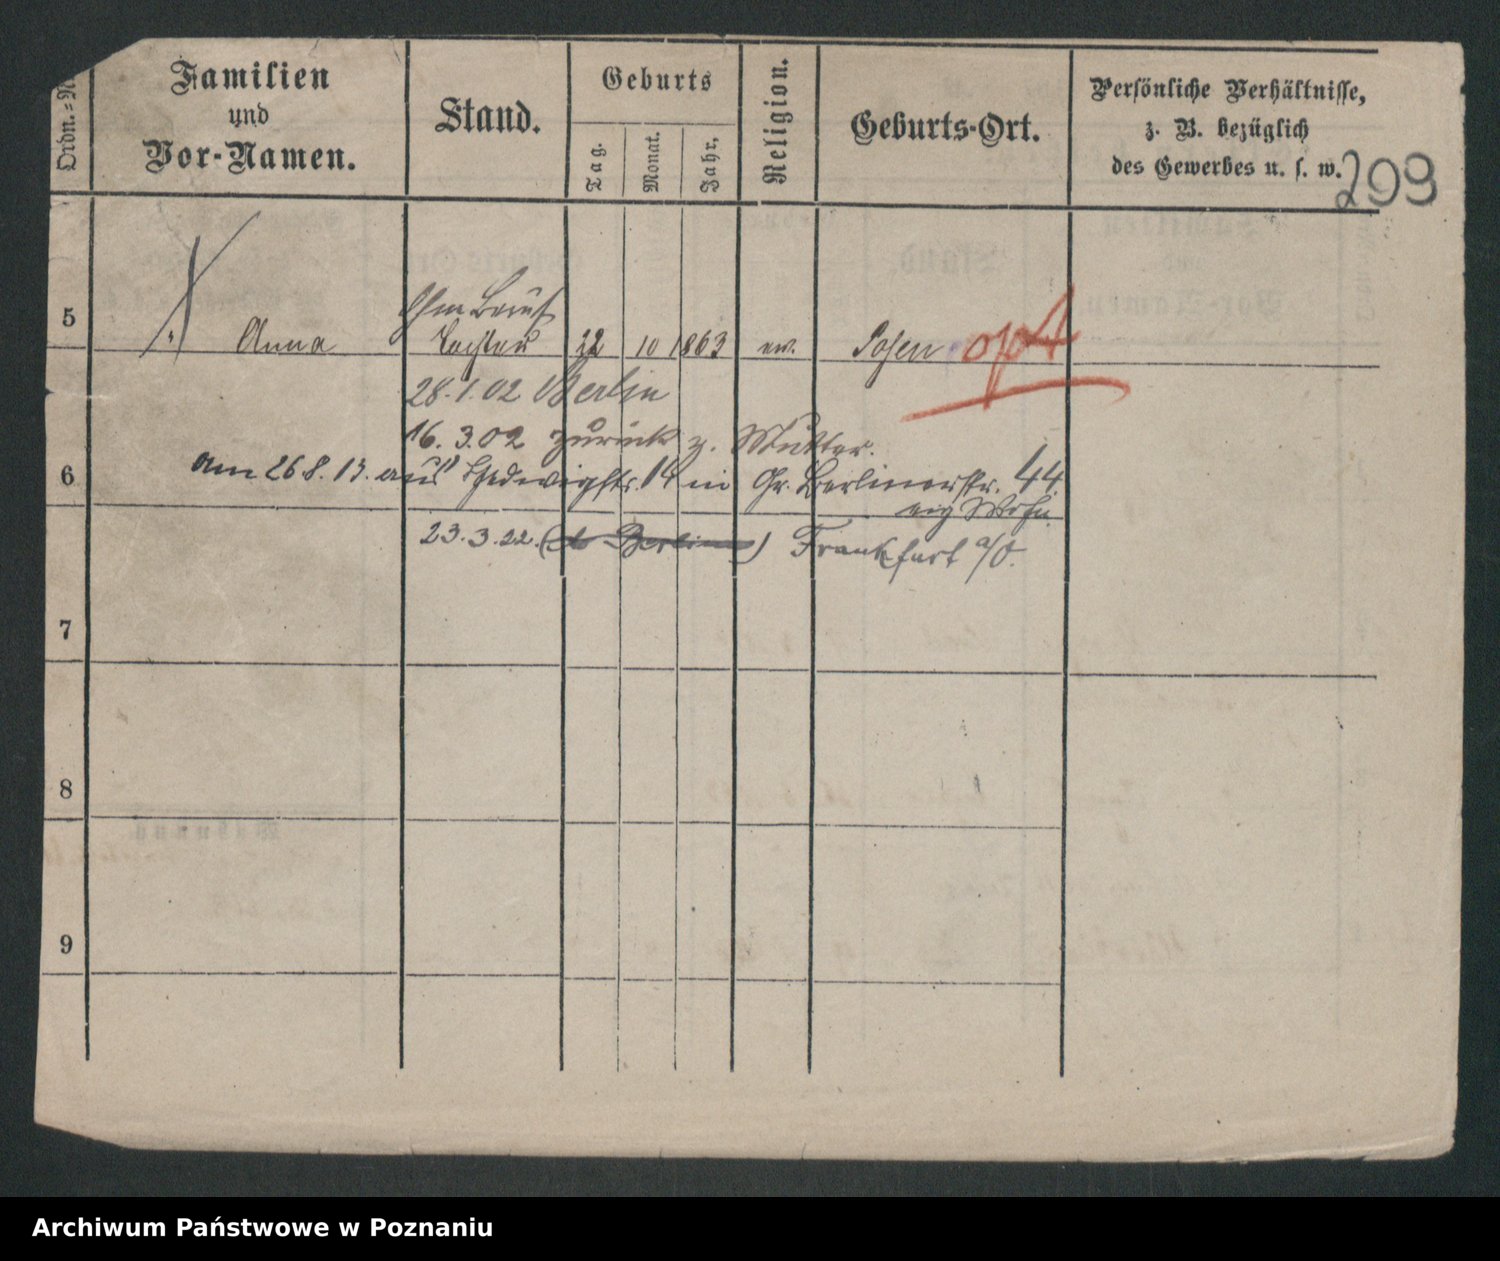 Ordn.=N
Familien
und
Vor-Namen.
Stand.
Geburts
Tag.
Monat.
Jahr,
Religion.
Geburts-Ort.
Persönliche Verhältnisse,
z. B. bezüglich
des Gewerbes u. s. w.
209
5
Ohne Beruf
Anna Tochter 22 10 1863 ev. Posen opt
28.1.02 Berlin
16.3.02 zurück z. Mutter.
6
am 26.8.13. aus Hedwigstr. 14 in Gr. Berlinerstr. 44
eig Wohn.
23.3.22. (Berlin) Frankfurt a/O.
7
8
9
Archiwum Państwowe w Poznaniu